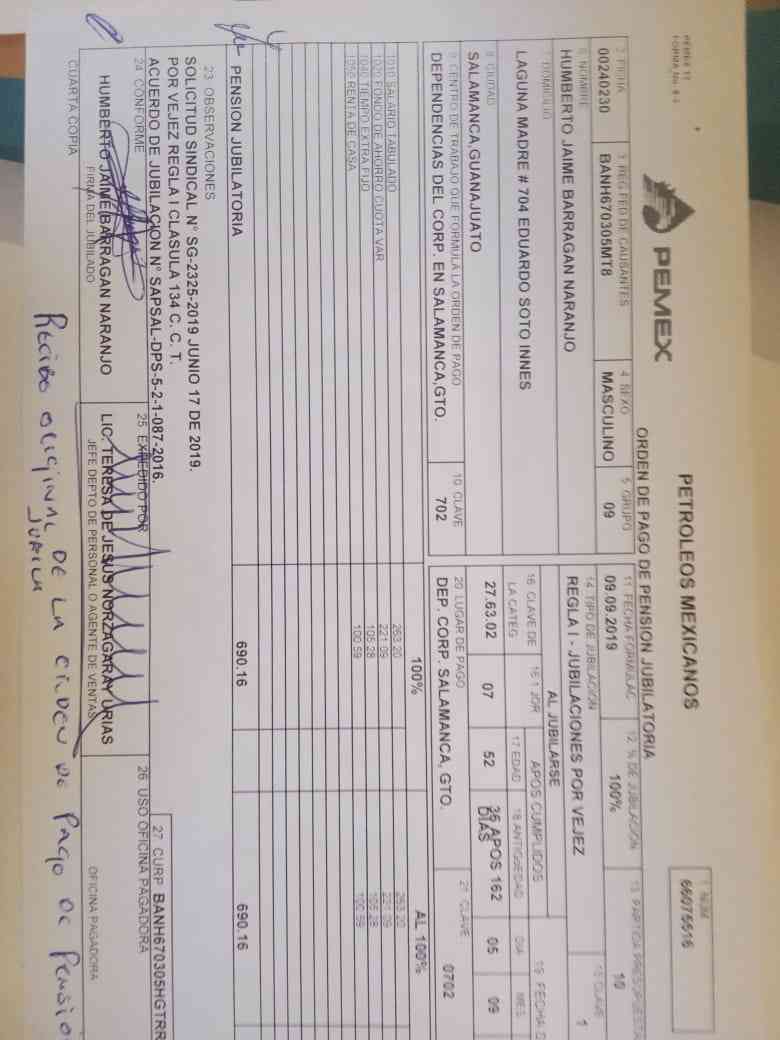 PEMEX 11
FORMA No. 8-1
PEMEX
PETROLEOS MEXICANOS
ORDEN DE PAGO DE PENSION JUBILATORIA
1 NUM
66075516
2 FICHA
00240230
3 REG FED DE CAUSANTES
BANH670305MT8
4 SEXO
MASCULINO
5 GRUPO
09
11 FECHA FORMULAC
09.09.2019
12 % DE JUBILACION
100%
13 PARTIDA PRESUPUESTA
10
6 NOMBRE
HUMBERTO JAIME BARRAGAN NARANJO
14 TIPO DE JUBILACION
REGLA I - JUBILACIONES POR VEJEZ
15 CLAVE
1
7 DOMICILIO
LAGUNA MADRE # 704 EDUARDO SOTO INNES
AL JUBILARSE
8 CIUDAD
SALAMANCA,GUANAJUATO
16 CLAVE DE
LA CATEG
27.63.02
16 1 JOR
07
AÑOS CUMPLIDOS
17 EDAD
52
18 ANTIGUEDAD
25 AÑOS 162
DIAS
19 FECHA D
DIA
05
MES
09
9 CENTRO DE TRABAJO QUE FORMULA LA ORDEN DE PAGO
DEPENDENCIAS DEL CORP. EN SALAMANCA,GTO.
10 CLAVE
702
20 LUGAR DE PAGO
DEP. CORP. SALAMANCA, GTO.
21 CLAVE
0702
100% AL 100%
1010 SALARIO TABULADO 263.20 263.20
1020 FONDO DE AHORRO CUOTA VAR 221.09 221.09
TIEMPO EXTRA FIJO 105.28 105.28
1050 RENTA DE CASA 100.59 100.59
PENSION JUBILATORIA 690.16 690.16
23 OBSERVACIONES
SOLICITUD SINDICAL N° SG-2325-2019 JUNIO 17 DE 2019.
POR VEJEZ REGLA I CLASULA 134 C. C. T.
ACUERDO DE JUBILACION N° SAPSAL-DPS-5-2-1-087-2016.
27 CURP BANH670305HGTRR
24 CONFORME
HUMBERTO JAIME BARRAGAN NARANJO
FIRMA DEL JUBILADO
25 EXPEDIDO POR
LIC. TERESA DE JESUS NORZAGARAY URIAS
JEFE DEPTO DE PERSONAL O AGENTE DE VENTAS
26 USO OFICINA PAGADORA
OFICINA PAGADORA
CUARTA COPIA
Recibo original de la orden de pago de pensio
Jubila